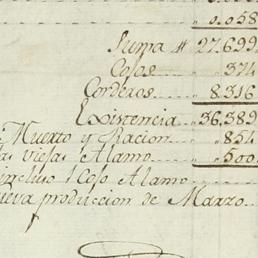 0.058
Suma # 27.699
Cojos " 374
Corderos " 8.316
Existencia " 36.389
Muerto y Racion " 854
as viejas Alamo " 500
incluso 1 Cojo Alamo
ueva produccion de Marzo